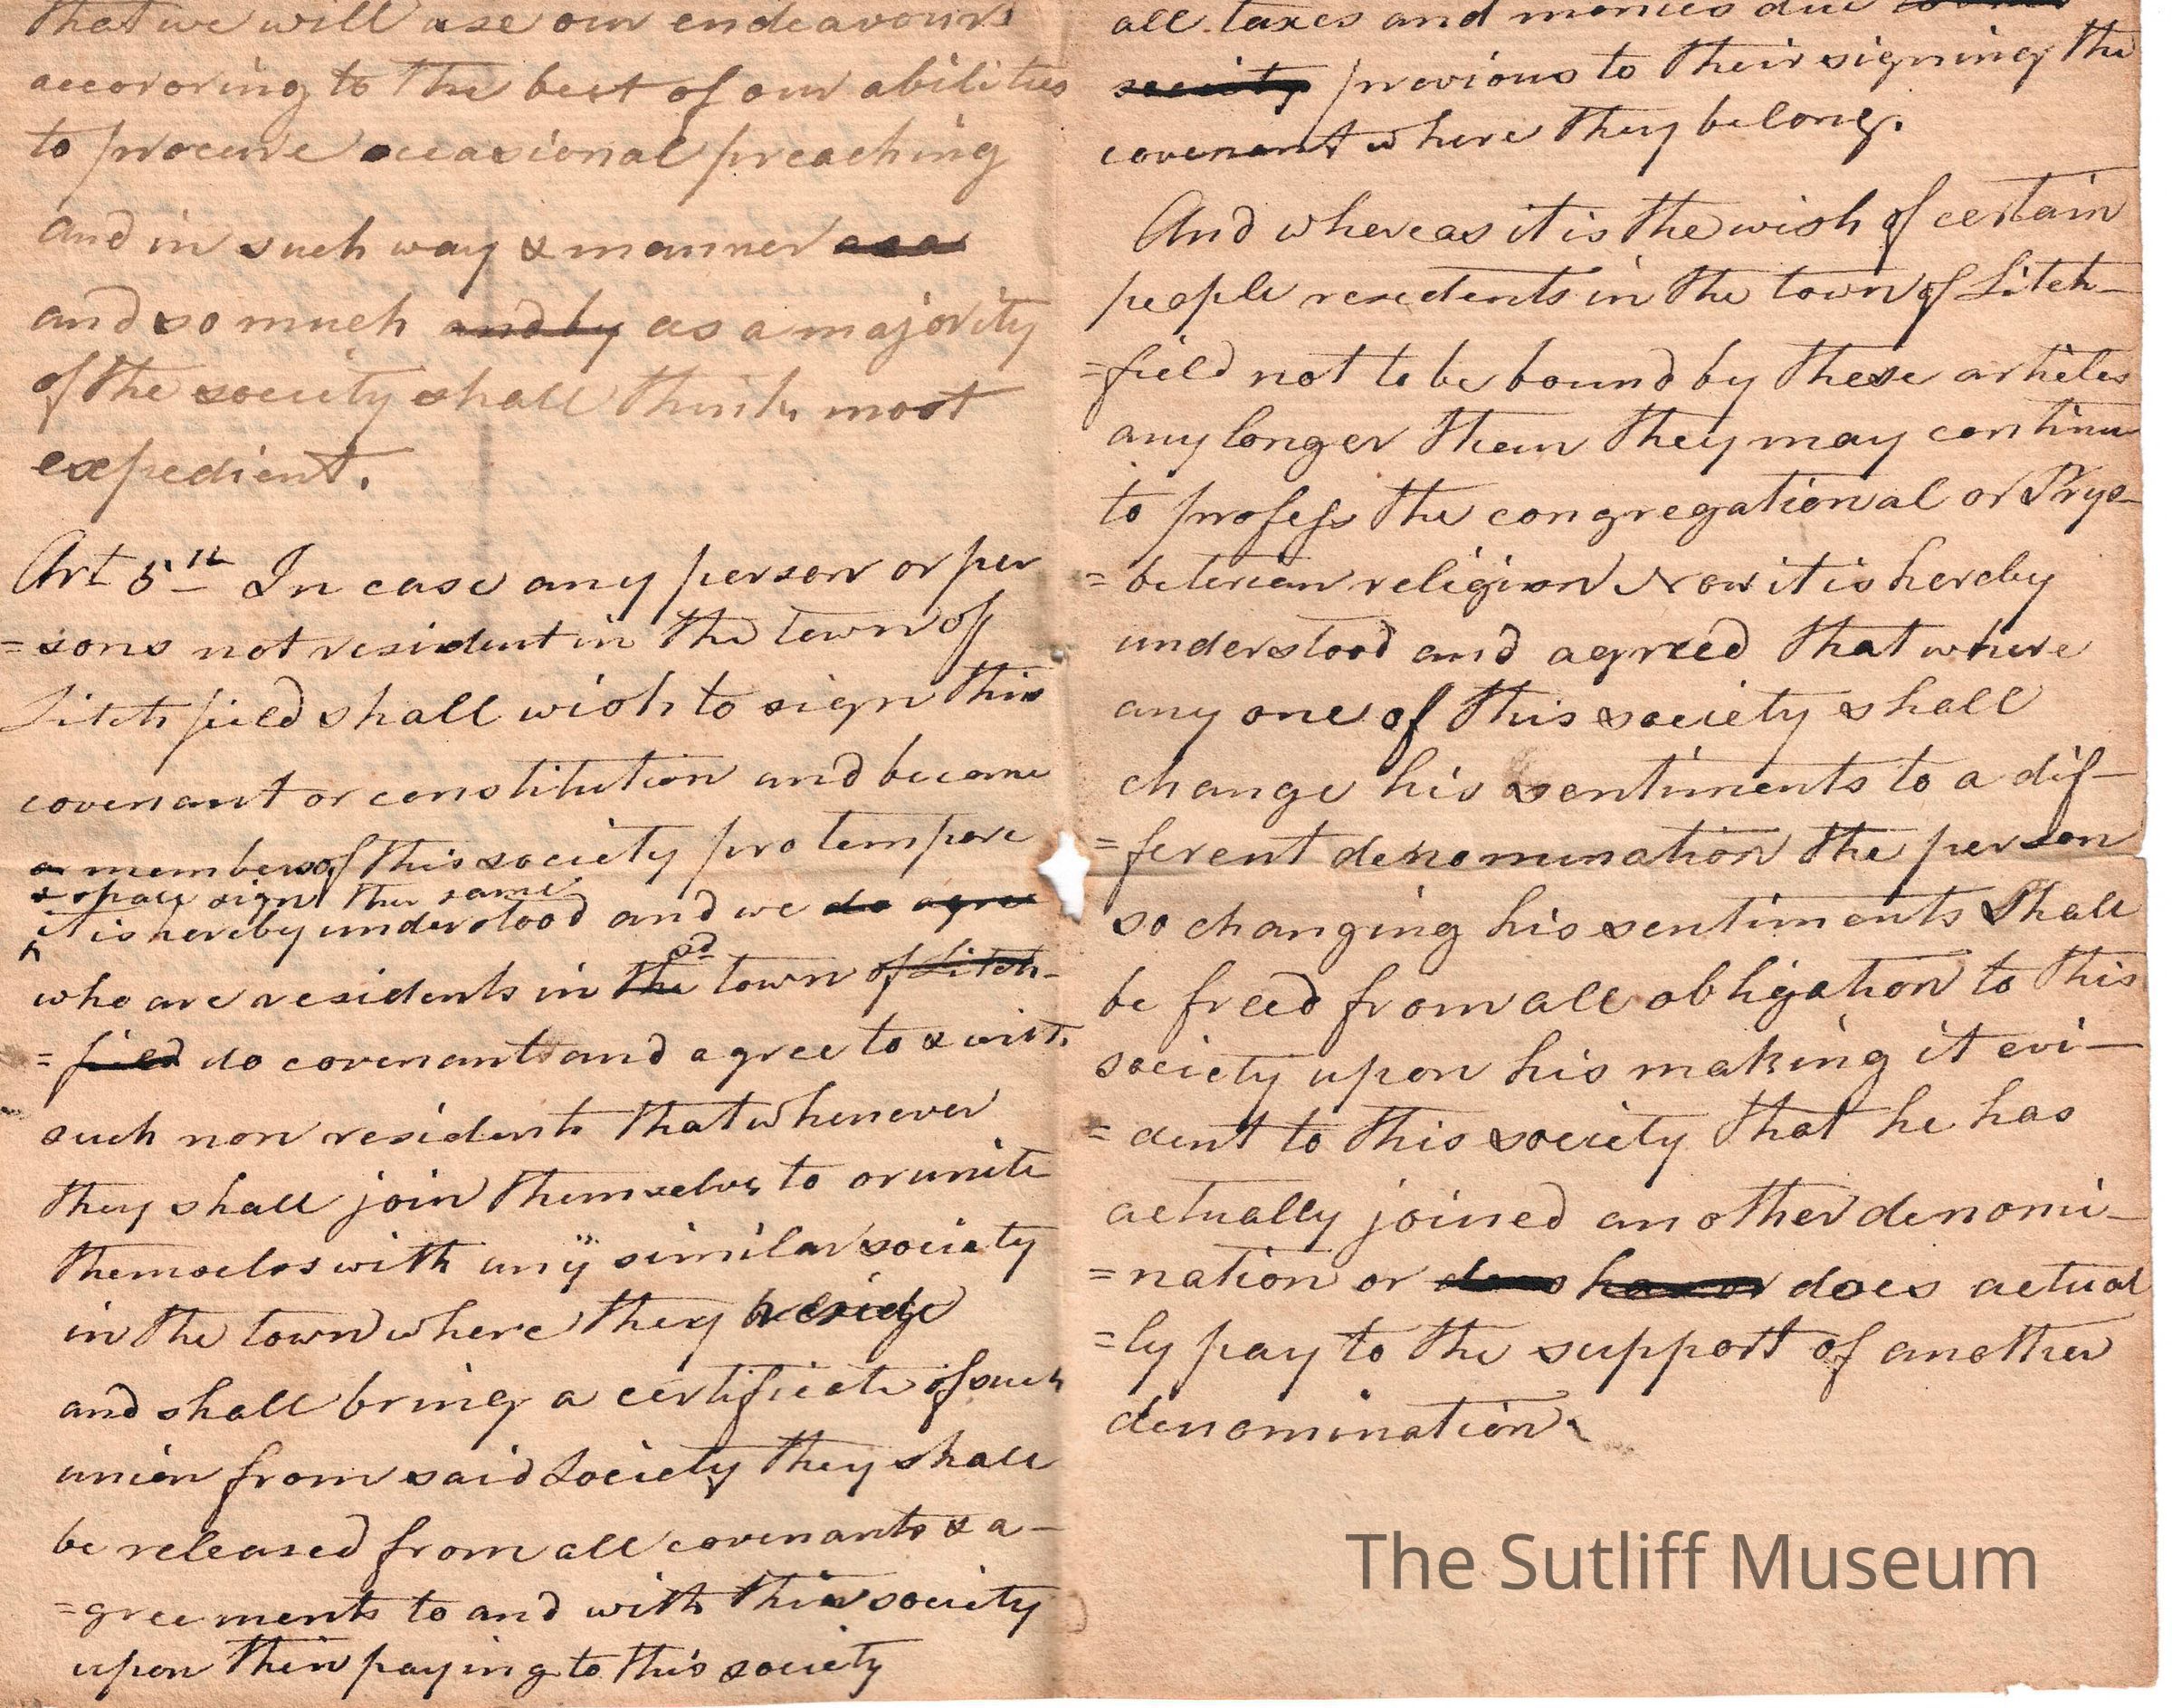 that we will use our endeavours
accororing to the best of our abilities
to procure occasional preaching
and in such way & manner as a
and so much and by as a majority
of the society shall think most
expedient.
Art 5th In case any person or per
=sons not resident in the town of
Litchfield shall wish to sign this
covenant or constitution and become
a members of this society pro tempore
& shall sign the same
it is hereby understood and we do agree
who are residents in the sd town of Litch-
=field do covenant and agree to & with
such non residents that whenever
they shall join themselves to or unite
themselvs with any similar society
in the town where they reside
and shall bring a certificate of such
union from said Society they shall
be released from all covenants & a-
=greements to and with this society
upon their paying to this society
all taxes and monies due
society previous to their signing the
covenant where they belong.
And whereas it is the wish of certain
people residents in the town of Litch-
=field not to be bound by these articles
any longer than they may continue
to profess the congregational or Prys-
=beterian religion Now it is hereby
understood and agreed that where
any one of this society shall
change his sentiments to a dif-
=ferent denomination the person
so changing his sentiments Shall
be freed from all obligation to this
society upon his making it evi-
=dent to this society that he has
actually joined another denomi-
=nation or does has or does actual
=ly pay to the support of another
denomination
The Sutliff Museum